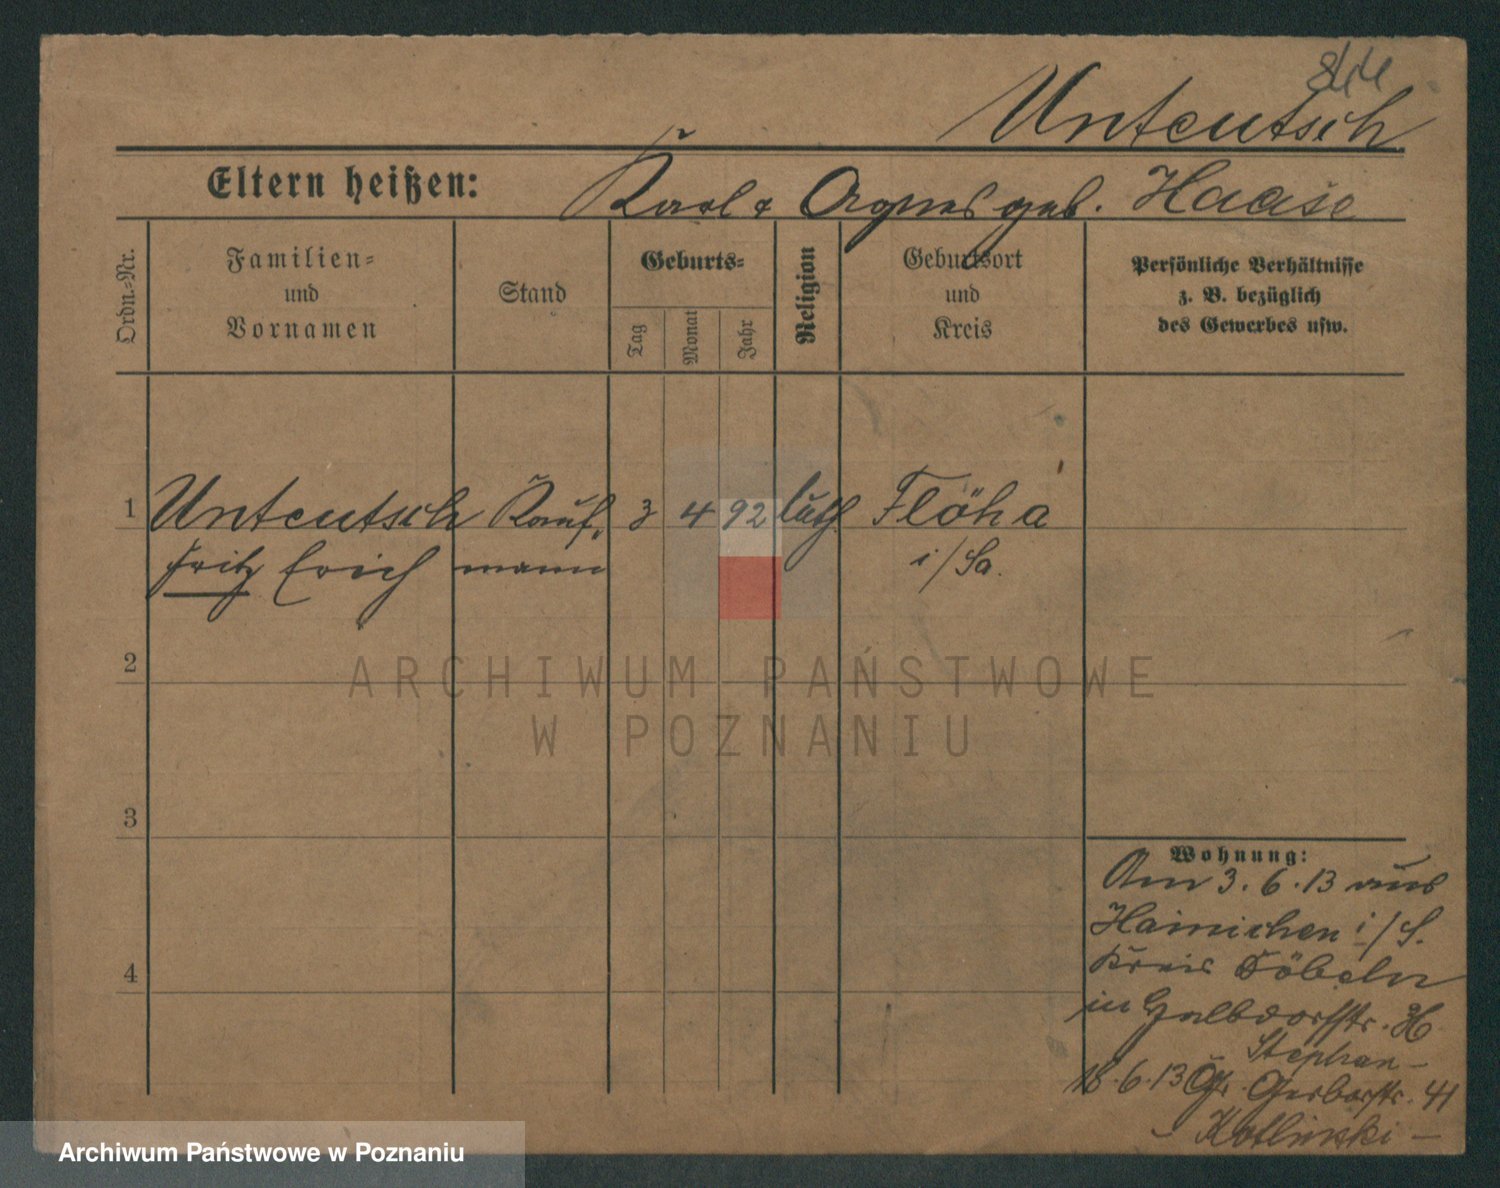 Unteutsch
Eltern heißen: Karl & Agnes geb. Haase
Ordn.-Nr.
Familien-
und
Vornamen
Stand
Geburts-
Tag
Monat
Jahr
Religion
Geburtsort
und
Kreis
Persönliche Verhältnisse
z. B. bezüglich
des Gewerbes usw.
1 Unteutsch Kauf- 3 4 92 luth. Flöha
Fritz Erich mann i/Sa.
2
3
4
Wohnung:
Am 3.6.13 aus
Hainichen i/S.
Kreis Döbeln
in Halbdorfstr.
Stephan -
18.6.13 Gr. Gerberstr. 41
- Kotlinski -
ARCHIWUM PAŃSTWOWE
W POZNANIU
Archiwum Państwowe w Poznaniu